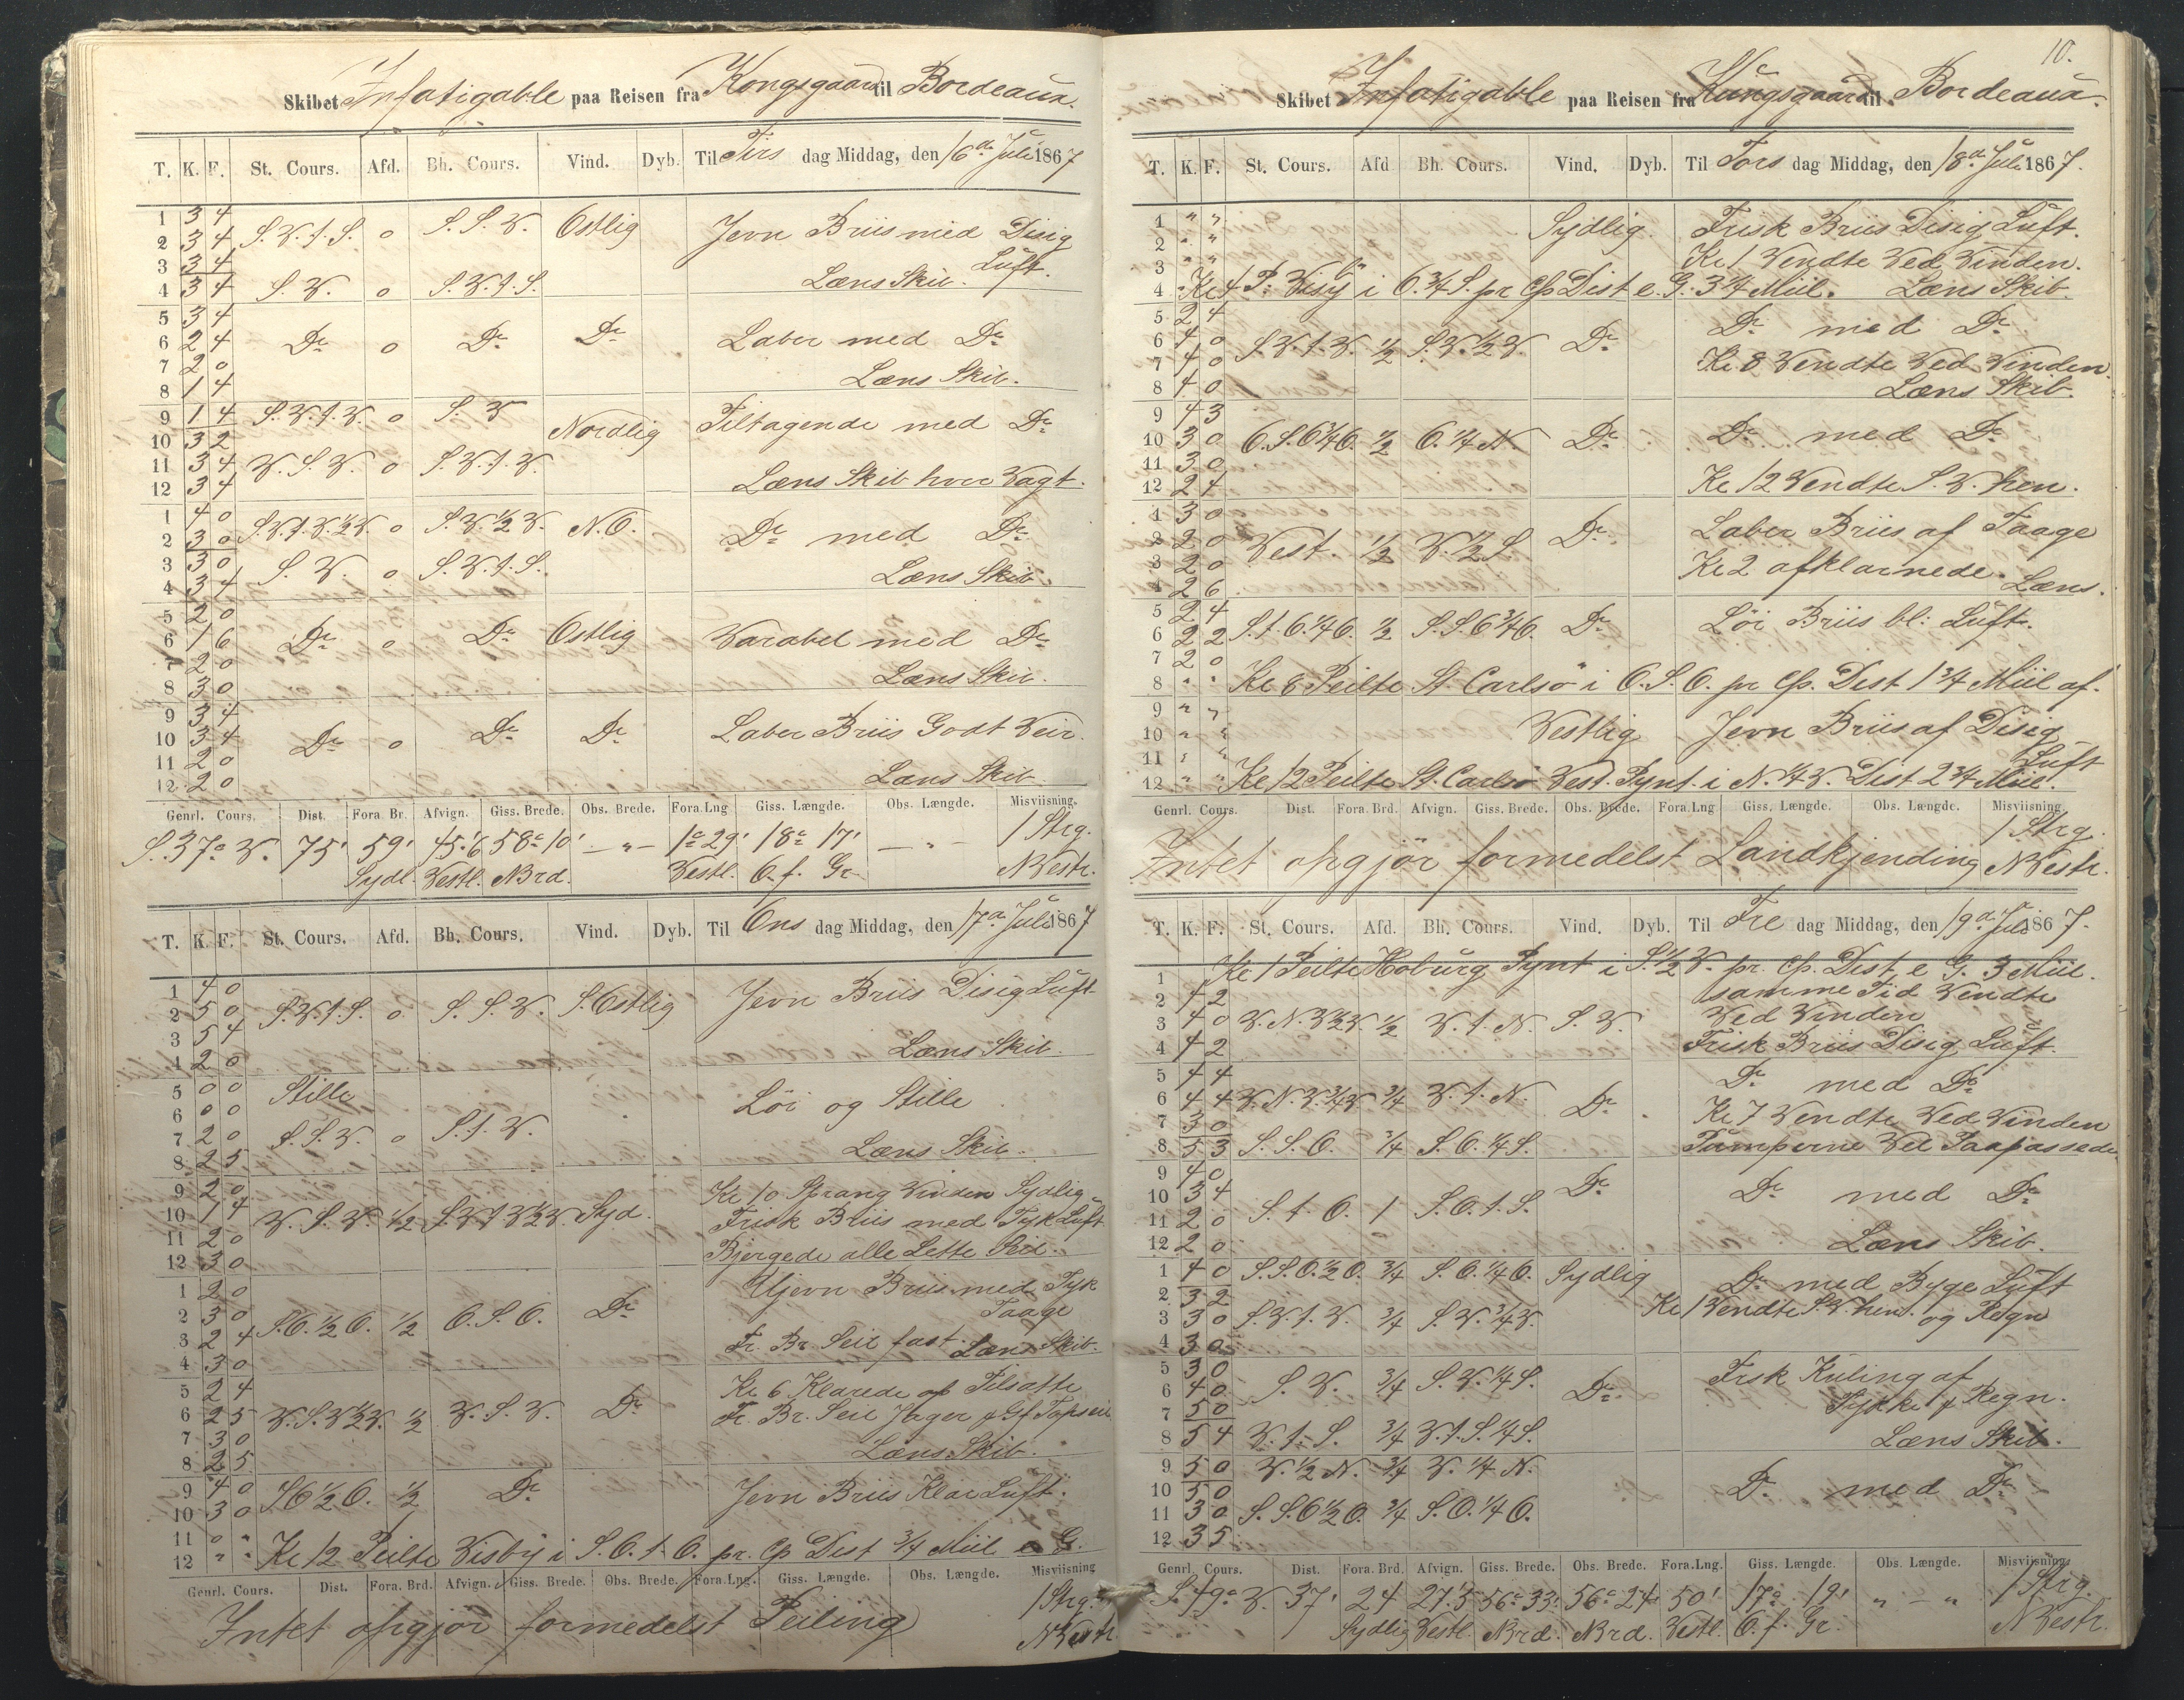 Skibet Infatigable paa Reisen fra Kongsgaard til Bordeaux.
T. K. F. St. Cours. Afd. Bh. Cours. Vind. Dyb. Til Tirs dag Middag, den 16de Juli 1867
1 3 4
2 3 4 S.V.t.S. o S.S.V. Ostlig Jevn Briis med Disig
3 3 4 Luft.
4 3 4 S.V. o S.V.t.S. Læns Skib.
5 3 4
6 2 4 Do o Do Do Laber med Do
7 2 0
8 1 4 Læns Skib.
9 1 4 S.V.t.V. o S.V Nordlig Tiltagende med Do
10 3 2
11 3 4 V.S.V. o S.V.t.V.
12 3 4 Læns Skib hver Vagt.
1 4 0 S.V.t.V.½V. o S.V.½V. N.O.
2 3 0 Do med Do
3 3 0 S.V. o S.V.t.S.
4 3 4 Læns Skib.
5 2 0
6 1 6 Do o Do Ostlig Varabel med Do
7 2 0
8 3 0 Læns Skib.
9 3 4
10 3 4 Do o Do Do Laber Briis Godt Veir.
11 2 0
12 2 0 Læns Skib.
Genrl. Cours. Dist. Fora. Br. Afvign. Giss. Brede. Obs. Brede. Fora.Lng Giss. Længde. Obs. Længde. Misviisning.
S.37o V. 75' 59' 45'6 58o10' —„— 1o29' 18o 17' —„— 1 Strg.
Sydl. Vestl. NBrd. Vestl. O.f. Gr. NVestr.
T. K. F. St. Cours. Afd. Bh. Cours. Vind. Dyb. Til Ons dag Middag, den 17de Juli 1867
1 4 0
2 5 0 S.V.t.S. o S.S.V. S.Ostlig Jevn Briis Disig Luft
3 5 4
4 2 0 Læns Skib.
5 0 0 Stille
6 0 0 Löi og Stille
7 2 0 S.S.V. o S.t.V.
8 2 5 Læns Skib.
9 2 0 Kl 10 Sprang Vinden Sydlig
10 1 4 V.S.V. ½ S.V.t.V½V. Syd. Frisk Briis med Tyk Luft
11 2 0 Bjergede alle Lette Seil.
12 3 0
1 2 0 Ujevn Briis med Tyk
2 3 0 S.O.½O. ½ O.S.O. Do Taage
3 2 4 Fr. Br. Seil fast. Læns Skib.
4 3 0
5 2 4 Kl 6 Klarede af Tilsatte
6 2 5 V.S.V½V. ½ V.S.V. Do Fr. Br. Seil Jager & Gf Topseil
7 3 0
8 2 5 Læns Skib.
9 4 0 SO½O. ½ Do Jevn Briis Klar Luft.
10 3 0
11 0 "
12 " " Kl 12 Peilte Visby i S.O.t.O. pr. Cp Dist ¾ Miil e G.
Genrl. Cours. Dist. Fora. Brd. Afvign. Giss. Brede. Obs. Brede. Fora.Lng. Giss. Længde. Obs. Længde. Misviisning
Intet opgjør formedelst Peiling 1 Strg.
NVestr
10.
Skibet Infatigable paa Reisen fra Kungsgaard til Bordeaux.
T. K. F. St. Cours. Afd Bh. Cours. Vind. Dyb. Til Tors dag Middag, den 18de Juli 1867.
1 " " Sydlig. Frisk Briis Disig Luft.
2 " " Kl 1 Vendte Ved Vinden.
3 " "
4 Kl 4 P. Visby i O.¾S. pr Cp Dist e. G. 3¾ Miil. Læns Skib.
5 2 4
6 4 0 S.V.t.V. ½ S.V.½V. Do Do med Do
7 4 0 Kl. 8 Vendte Ved Vinden.
8 4 0 Læns Skib.
9 4 3
10 3 0 O.S.O¾O. ½ O.¼N. Do Do med Do
11 3 0
12 2 4 Kl 12 Vendte S.V. hen.
1 3 0 Laber Briis af Taage
2 2 0 Vest. ½ V.½S. Do
3 2 0 Kl 2 afklarnede.
4 2 6 Læns.
5 2 4 Löi Briis bl: Luft.
6 2 2 S.t.O.¼O. ½ S.S.O¾O. Do
7 2 0
8 " " Kl 8 Peilte St. Carlsö i O.S.O. pr Cp. Dist 1¾ Miil af.
9 " "
10 " " Vestlig Jevn Briis af Disig
11 " " Luft
12 " " Kl 12 Peilte St. Carlsö Vest. Pynt. i N.¼V. Dist 2¾ Miil.
Genrl. Cours. Dist. Fora. Brd. Afvign. Giss. Brede. Obs. Brede. Fora.Lng Giss. Længde. Obs. Længde. Misviisning
Intet opgjør formedelst Landkjending 1 Strg.
NVestr.
T. K. F. St. Cours. Afd. Bh. Cours. Vind. Dyb. Til Fre dag Middag, den 19de Juli 1867.
1 Kl 1 Peilte Hoburg Pynt i S.½V. pr. Cp. Dist e G. 3 Miil.
2 4 2 samme Tid Vendte
3 4 0 V.N.V½V. ½ V.t.N. S.V. Ved Vinden
4 4 2 Frisk Briis Disig Luft.
5 4 4 Do med Do
6 4 4 V.N.V.¾V ¾ V.t.N. Do Kl. 7 Vendte Ved Vinden
7 3 0
8 5 3 S.S.O. ¾ S.O.¼S. Pumperne Vel Paapassede
9 4 0
10 3 4 S.t.O. 1 S.O.t.S. Do Do med Do
11 2 0
12 2 0 Læns Skib.
1 4 0 S.S.O.½O. ¾ S.O.¼O. Sydlig Do med Byge Luft
2 3 2 Kl 1 Vendte S.V. hen. og Regn
3 3 0 S.V.t.V. ¾ S.V.¾V.
4 3 0
5 3 0 Frsk Kuling af
6 4 0 S.V. ¾ S.V.¼S. Do Tykke & Regn.
7 5 0
8 5 4 V.t.S. ¾ V.t.S.¼S. Læns Skib.
9 5 0 V.½N. ¾ V.¼N.
10 5 0 Do med Do
11 3 0 S.S.O½O. ¾ S.O.¼O.
12 3 5
Genrl. Cours. Dist. Fora. Brd. Afvign. Giss. Brede. Obs. Brede. Fora.Lng. Giss. Længde. Obs. Længde. Misviisning.
S.49o V. 37' 24 27'.5 56o33' 56o24' 50' 17o 19' „ — „ 1 Strg.
Sydlig Vestl. NBrd. NBrd. Vestl. O.f. Gr. NVestr.